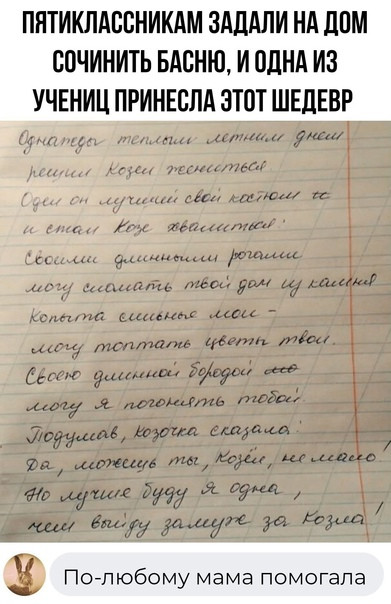 ПЯТИКЛАССНИКАМ ЗАДАЛИ НА ДОМ
СОЧИНИТЬ БАСНЮ, И ОДНА ИЗ
УЧЕНИЦ ПРИНЕСЛА ЭТОТ ШЕДЕВР
Однажды теплым летним днем
решил Козел жениться.
Одел он лучший свой костюм
и стал Козе хвалиться:
Своими длинными рогами
могу сломать твой дом из камня
Копыта сильные мои –
могу топтать цветы твои.
Своею длинной бородой
могу я погонять тобой.
Подумав, козочка сказала:
Да, можешь ты, Козёл, не мало!
Но лучше буду я одна,
чем выйду замуж за Козла!
По-любому мама помогала